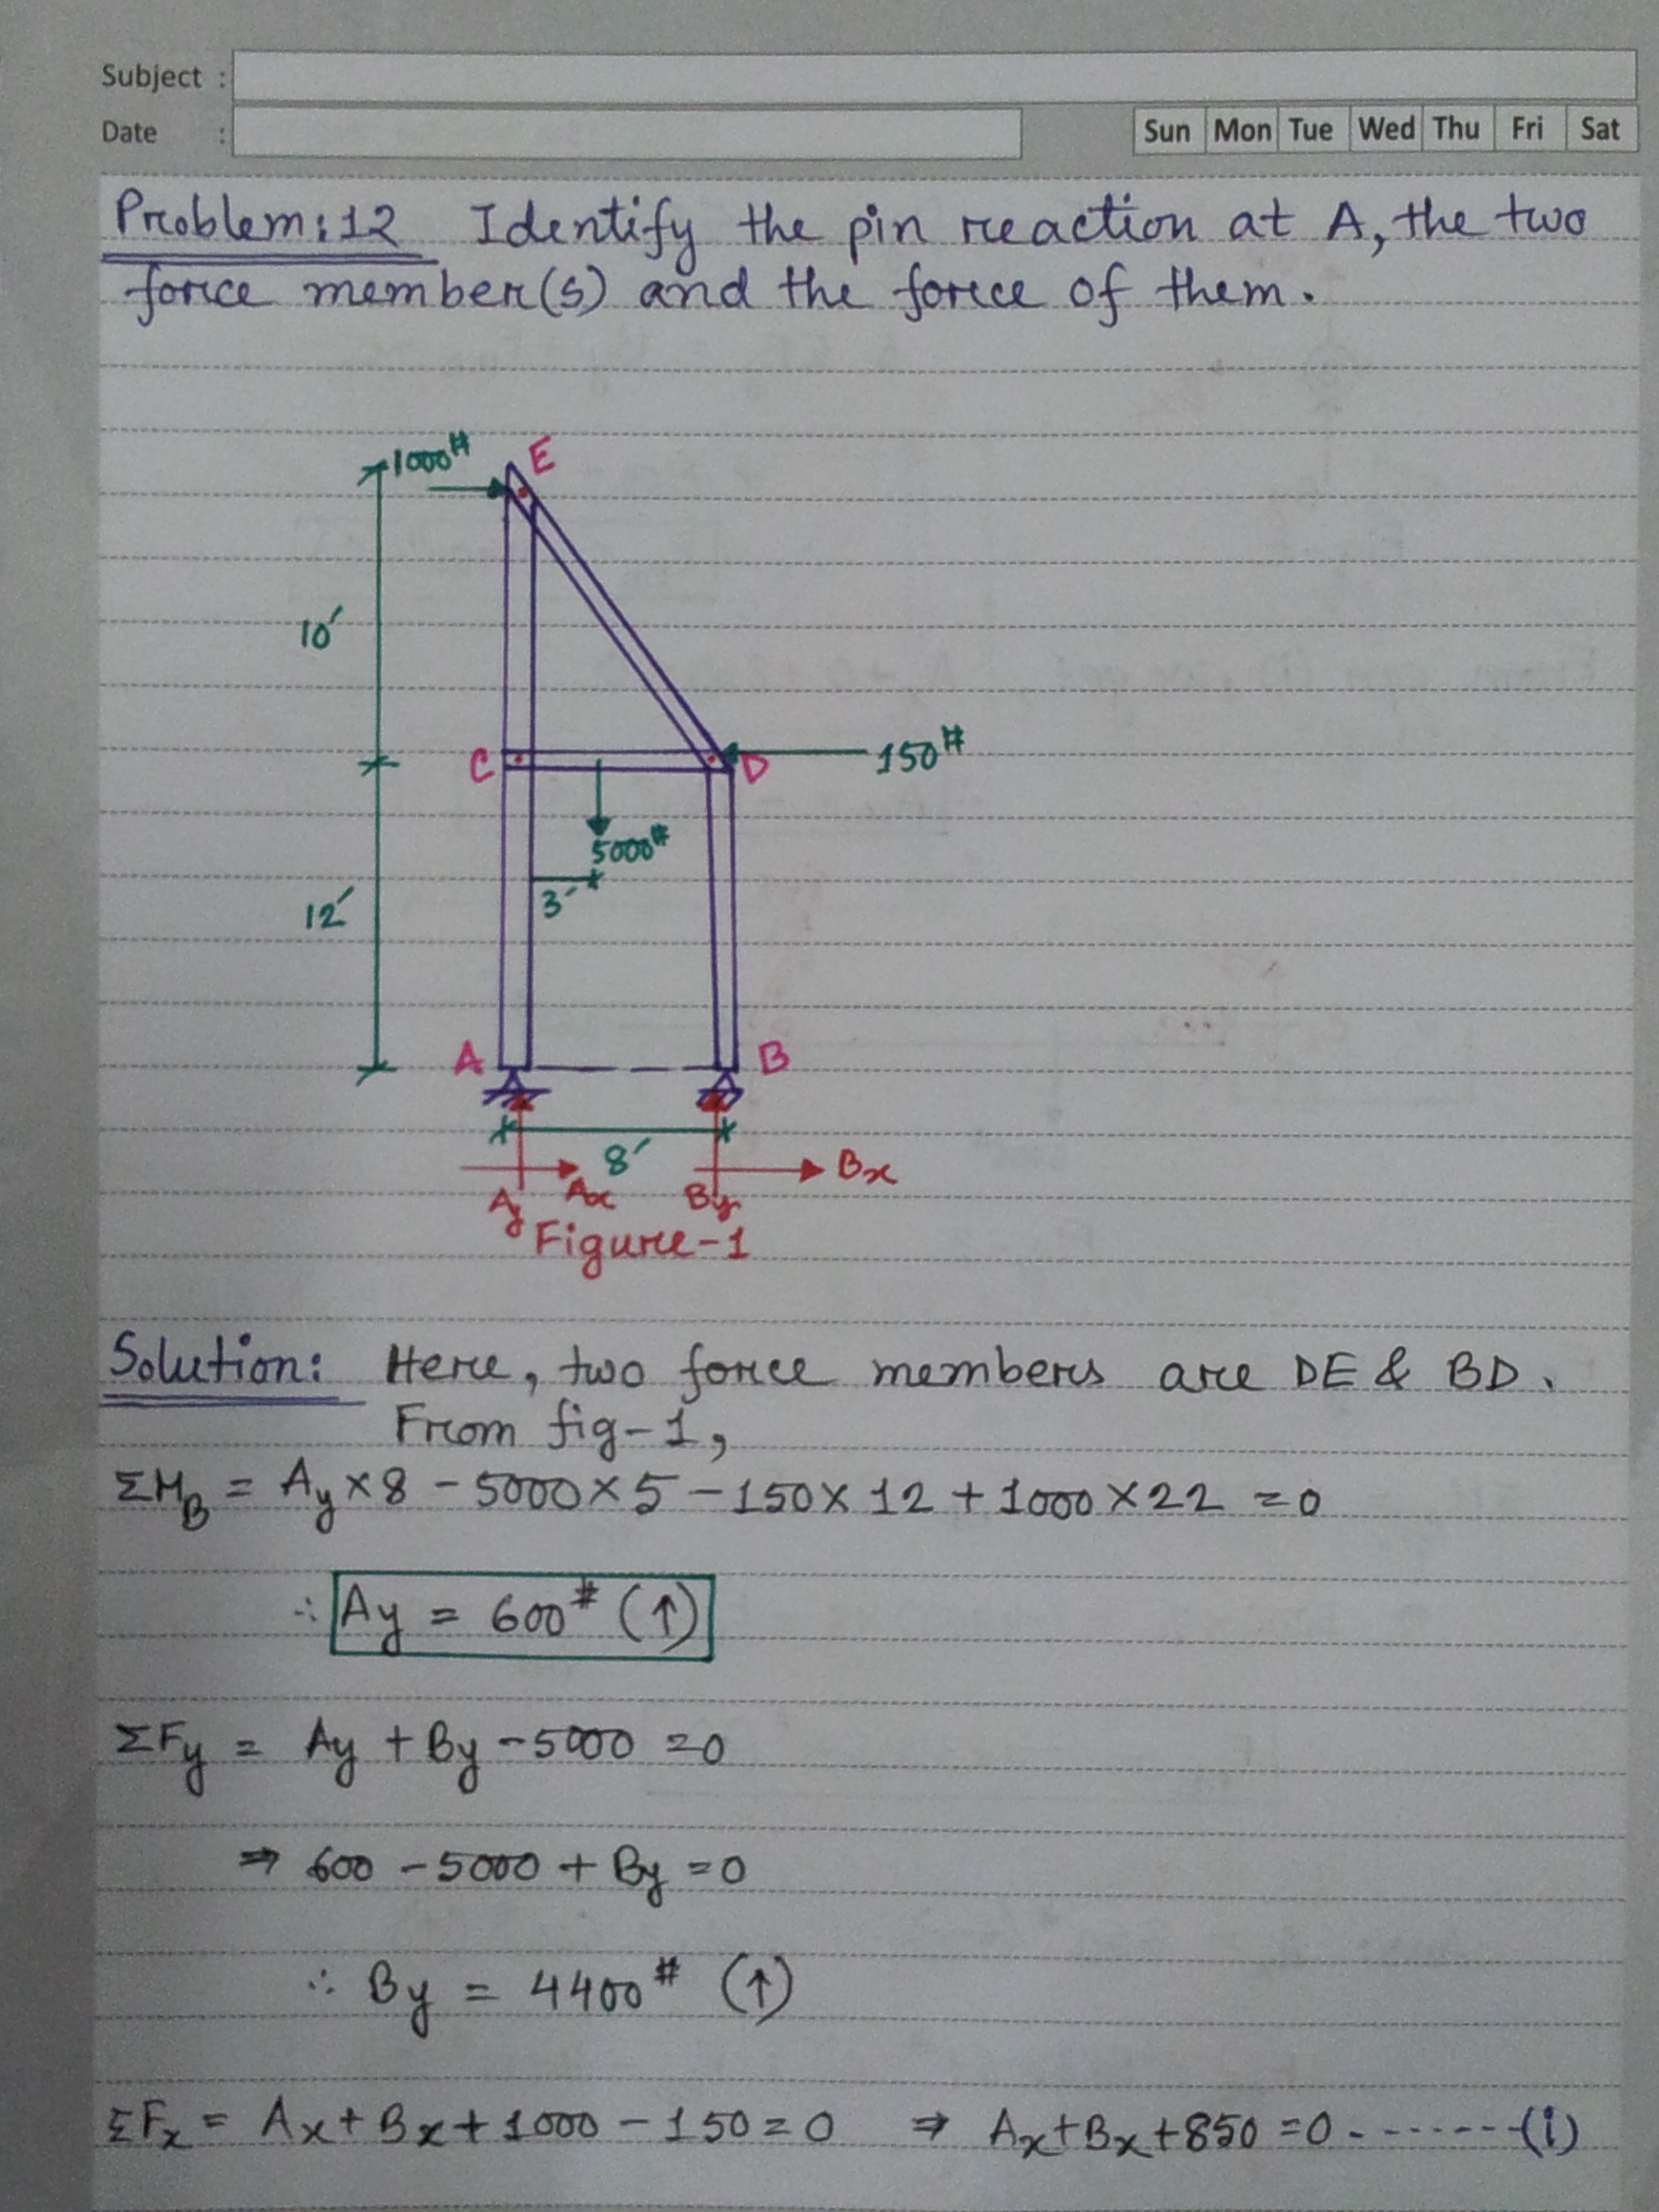 Subject :
Date :
Sun Mon Tue Wed Thu Fri Sat
Problem: 12 Identify the pin reaction at A, the two
force member(s) and the force of them.
1000#
E
10'
C
D
150#
5000#
3'
12'
A
B
8'
Ay
Ax
By
Bx
Figure-1
Solution: Here, two force members are DE & BD.
From fig-1,
ΣM_B = Ay × 8 - 5000 × 5 - 150 × 12 + 1000 × 22 = 0
∴ Ay = 600# (↑)
ΣFy = Ay + By - 5000 = 0
⇒ 600 - 5000 + By = 0
∴ By = 4400# (↑)
ΣFx = Ax + Bx + 1000 - 150 = 0 ⇒ Ax + Bx + 850 = 0 - - - - - - - (i)